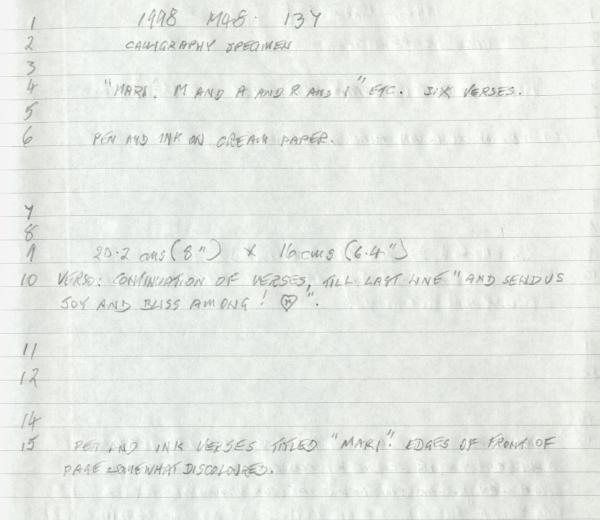 1 1998 M48. 134
2 CALLIGRAPHY SPECIMEN
3
4 "MARI. M AND A AND R AND I" ETC. SIX VERSES.
5
6 PEN AND INK ON CREAM PAPER.
7
8
9 20.2 cms (8") x 16 cms (6.4")
10 VERSO: CONTINUATION OF VERSES, TILL LAST LINE "AND SEND US
JOY AND BLISS AMONG! ".
11
12
14
15 PEN AND INK VERSES TITLED "MARI". EDGES OF FRONT OF
PAGE SOMEWHAT DISCOLOURED.